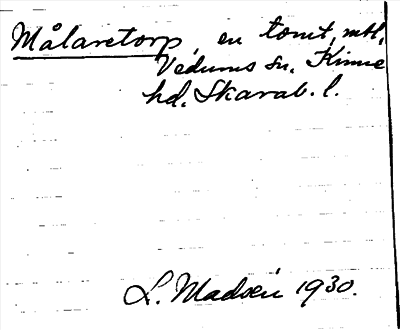 Målaretorp, en tomt, mtl,
Vedums sn. Kinne
hd. Skarab. l.
L. Madsén 1930.